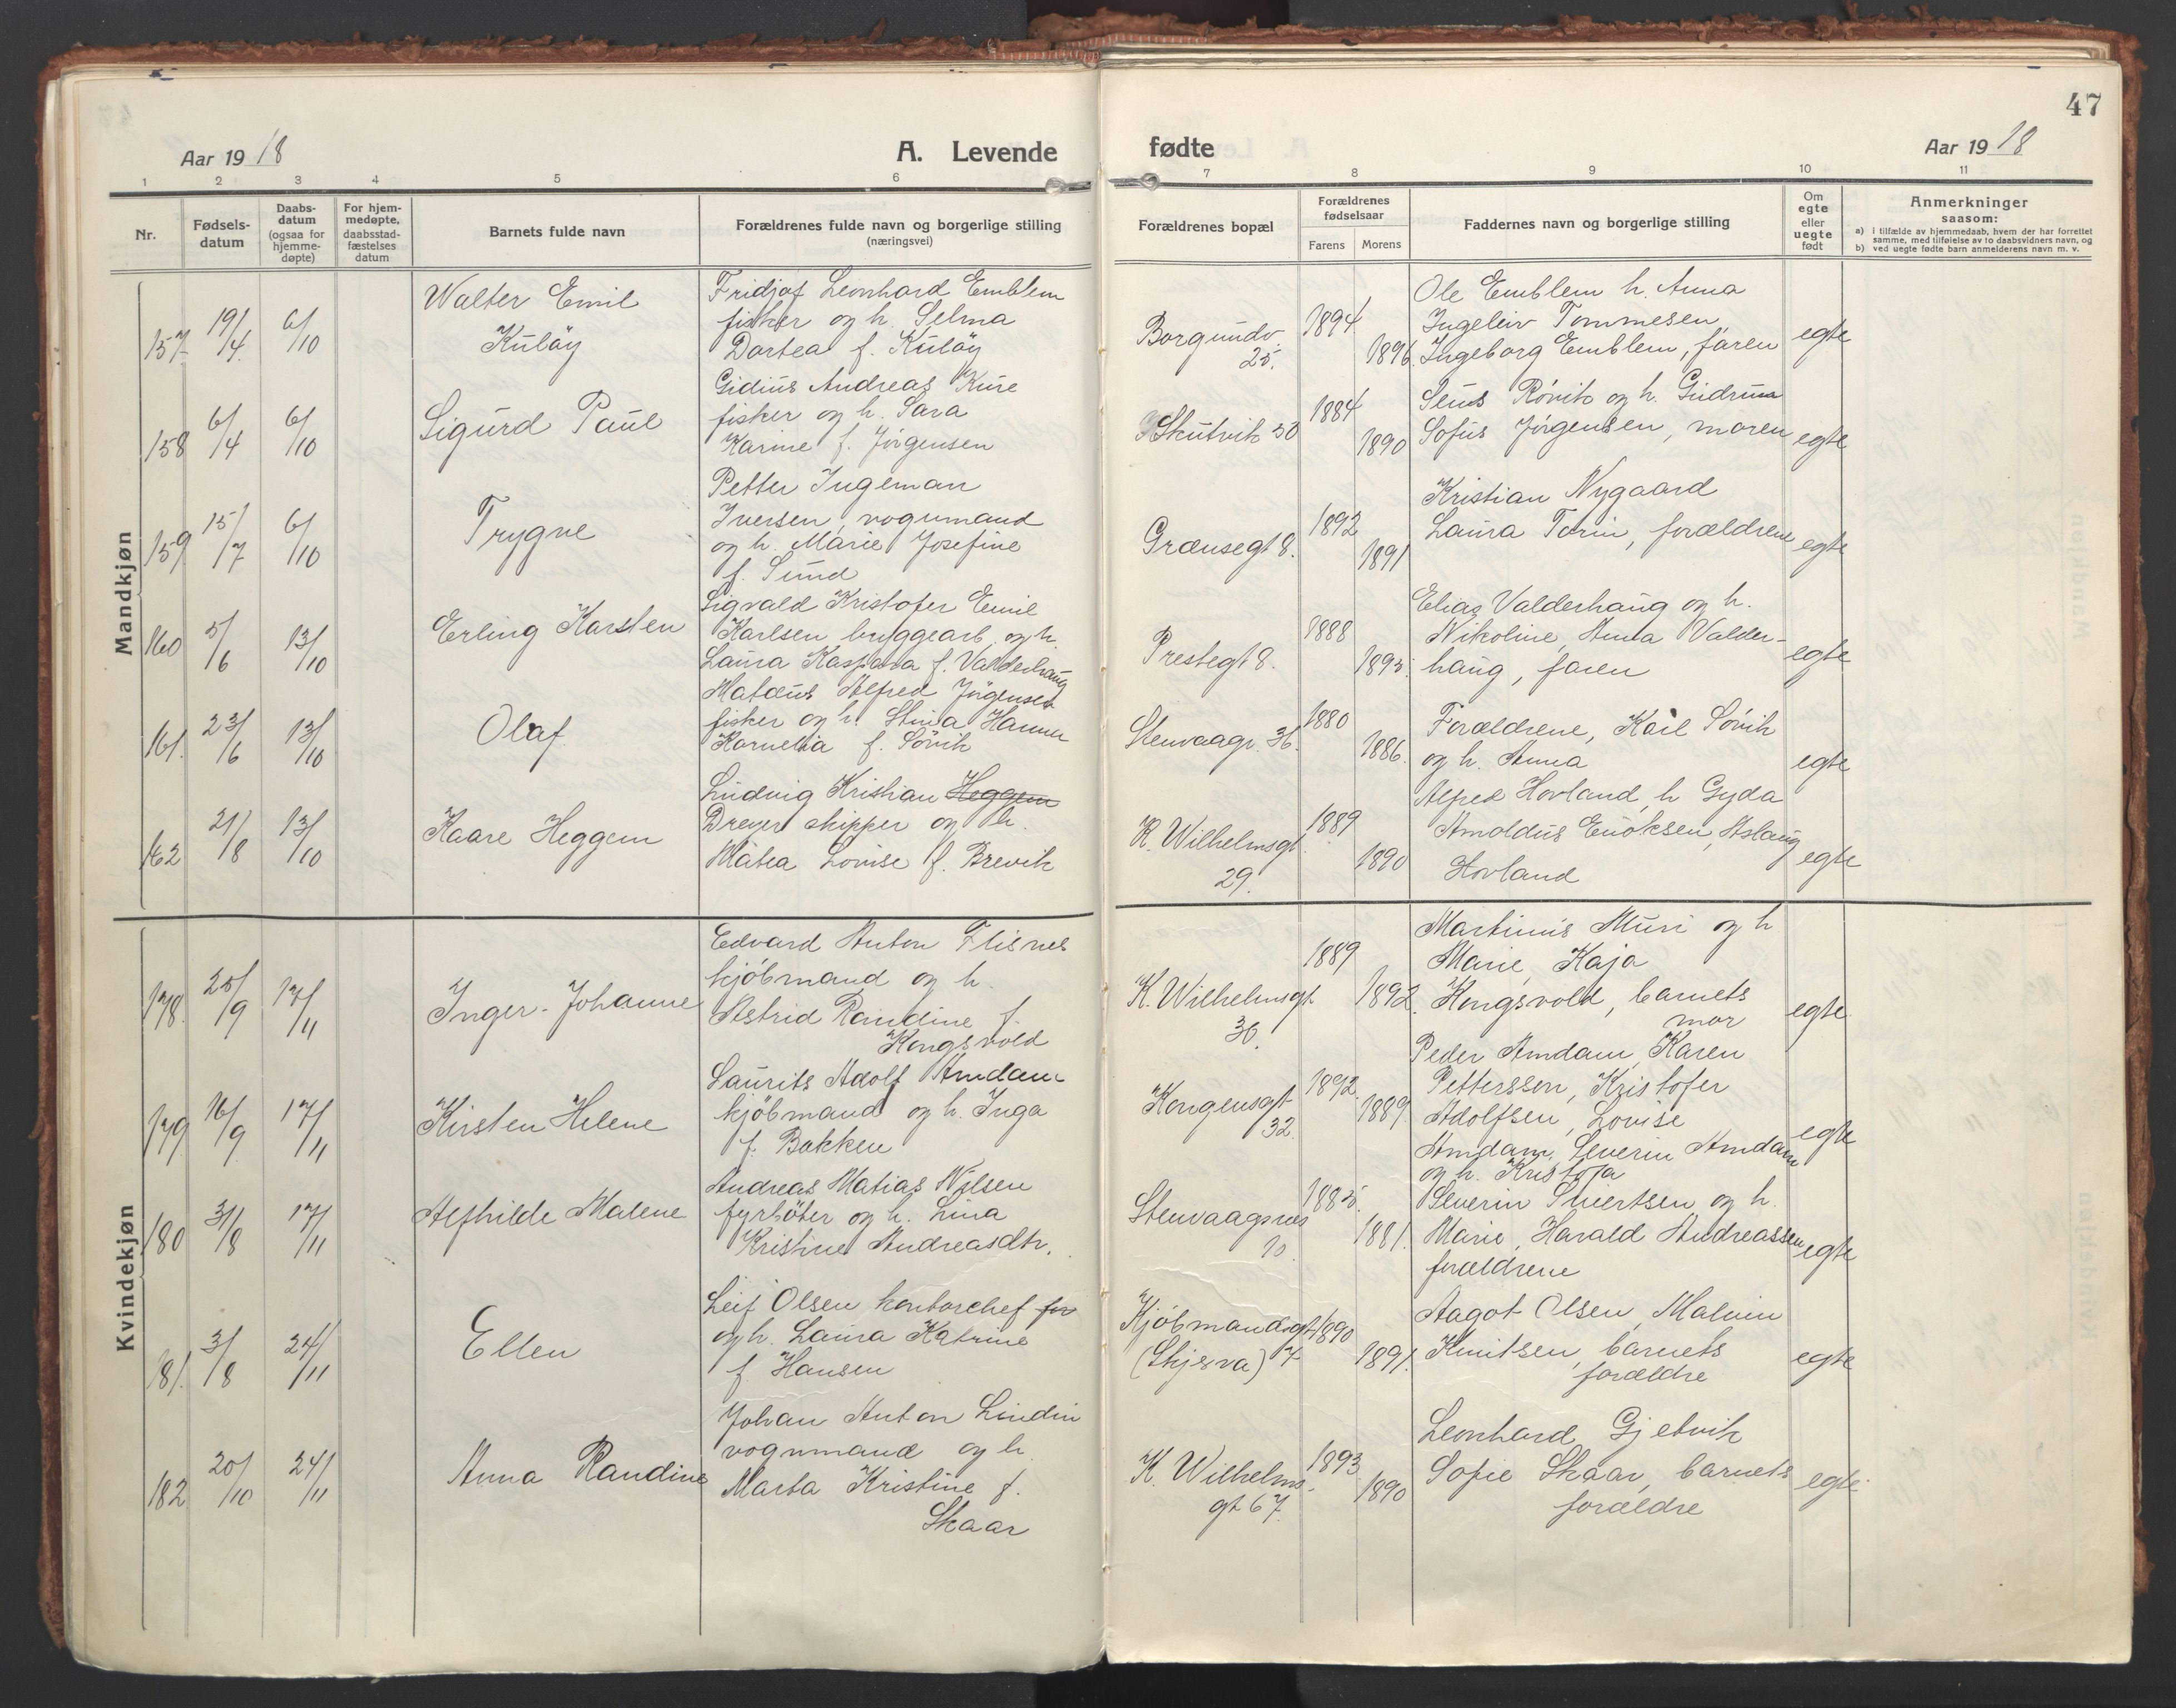 47
Aar 1918
A. Levende
fødte
Aar 1918
1 2 3 4 5 6 7 8 9 10 11
Nr.
Fødsels-
datum
Daabs-
datum
(ogsaa for
hjemme-
døpte)
For hjem-
medøpte,
daabsstad-
fæstelses
datum
Barnets fulde navn
Forældrenes fulde navn og borgerlige stilling
(næringsvei)
Forældrenes bopæl
Forældrenes
fødselsaar
Farens Morens
Faddernes navn og borgerlige stilling
Om
egte
eller
uegte
født
Anmerkninger
saasom:
a) i tilfælde av hjemmedaab, hvem der har forrettet
samme, med tilføielse av to daabsvidners navn, og
b) ved uegte fødte barn anmelderens navn m. v.
Mandkjøn
157 19/4 6/10
Walter Emil
Kuløy
Fridjof Leonhard Emblem
fisker og h. Selma
Dortea f. Kuløy
Borgundv.
25.
1894
1896
Ole Emblem h. Anna
Ingeleiv Tommesen,
Ingeborg Emblem, faren
egte
158 6/4 6/10
Sigurd Paul
Gidius Andreas Kure
fisker og h. Sara
Karine f. Jørgensen
Skutvik 50
1884
1890
Røvik og h. Gudrun
Sofus Jørgensen, moren
egte
159 15/7 6/10
Trygve
Petter Ingeman
Iversen, vognmand
og h. Marie Josefine
f. Sund
Grænsegt 8.
1892
1891
Kristian Nygaard
Laura Torin, forældrene
egte
160 5/6 13/10
Erling Karsten
Sigvald Kristofer Emil
Karlsen bryggearb. og h.
Laura Kaspara f. Valderhaug
Prestegt 8.
1888
1895.
Elias Valderhaug og h.
Nikoline, Anna Valder-
haug, faren
egte
161. 23/6 13/10
Olaf
Mataus Alfred Jørgensen
fisker og h. Stina Hanna
Kornelia f. Søvik
Stenvaagv. 36.
1880
1886.
Forældrene, Karl Søvik
og h. Anna
egte
162 21/8 13/10
Kaare Heggem
Ludvig Kristian Heggem
Dreyer skipper og h.
Matea Lovise f. Brevik
K. Wilhelmsgt
29.
1889
1890
Alfred Hovland, h Gyda
Arnoldus Enoksen, Aslaug
Hovland
egte
Kvindekjøn
178. 25/9 17/11
Inger-Johanne
Edvard Anton Flisnes
kjöbmand og h.
Astrid Randine f.
Kongsvold
K. Wilhelmsgt.
36.
1889
1892.
Martinus Muri og h
Marie, Kaja
Kongsvold, barnets
mor
egte
179. 16/9 17/11
Kirsten Helene
Laurits Adolf Amdam
kjøbmand og h. Inga
f. Bakken
Kongensgt
32.
1892.
1889
Peder Amdam, Karen
Petterssen, Kristofer
Adolfsen, Lovise
Amdam, Severin Amdam
og h. Kristofa
egte
180 31/8 17/11
Alfhilde Malene
Andreas Matias Nilsen
fyrbøter og h. Lina
Kristine Andreasdtr.
Stenvaagsnes
10.
1885.
1881.
Severin Sivertsen og h.
Marie, Harald Andreassen
forældrene
egte
181. 3/8 24/11
Ellen
Leif Olsen kontorchef for
og h. Laura Katrine
f Hansen
Kjöbmandsgt.
(Skjerva) 7
1890
1891.
Aagot Olsen, Malvin
Knutsen, barnets
forældre
egte
182 20/10 24/11
Anna Randine
Johan Anton Lindin
vognmand og h
Marta Kristine f.
Skaar
K. Wilhelms-
gt 67.
1893
1890
Leonhard Gjetvik
Sofie Skaar, barnets
forældre
egte